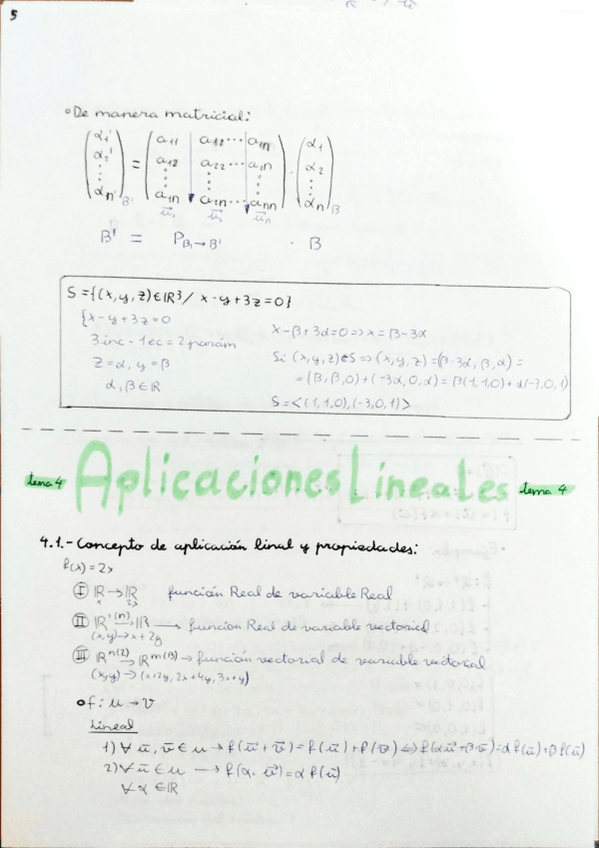 5
∘De manera matricial:
(α1' α2' ⋮ αn')B' = (a11 a12 ⋯ a1n a12 a22 ⋯ a2n ⋮ ⋮ ⋮ a1n a2n ⋯ ann) · (α1 α2 ⋮ αn)B
u⃗1 u⃗2 u⃗n
B' = P B→B' · B
S={(x,y,z)∈ℝ³/ x-y+3z=0}
{x-y+3z=0
3 inc - 1 ec = 2 parám
z=α, y=β
α,β∈ℝ
x-β+3α=0=>x=β-3α
Si (x,y,z)∈S => (x,y,z) =(β-3α, β, α) =
= (β,β,0)+(-3α,0,α)=β(1,1,0)+α(-3,0,1)
S=<(1,1,0),(-3,0,1)>
tema 4 Aplicaciones Lineales tema 4
4.1.- Concepto de aplicación linal y propiedades:
f(x)=2x
Ⓘ ℝ → ℝ función Real de variable Real
x 2x
Ⅱ ℝ^(n) → ℝ → función Real de variable vectorial
(x,y)→x+2y
Ⅲ ℝ^n(2) → ℝ^m(3) → función vectorial de variable vectorial
(x,y) → (x+2y, 2x+4y, 3x+y)
∘f: u → v
Lineal
1) ∀ u̅, v̅ ∈ u → f(u⃗+v⃗)=f(u⃗)+f(v⃗) <=> f(αu⃗+βv⃗)=αf(u⃗)+βf(v⃗)
2) ∀ u̅ ∈ u → f(α·u⃗)=α f(u⃗)
∀ α ∈ℝ